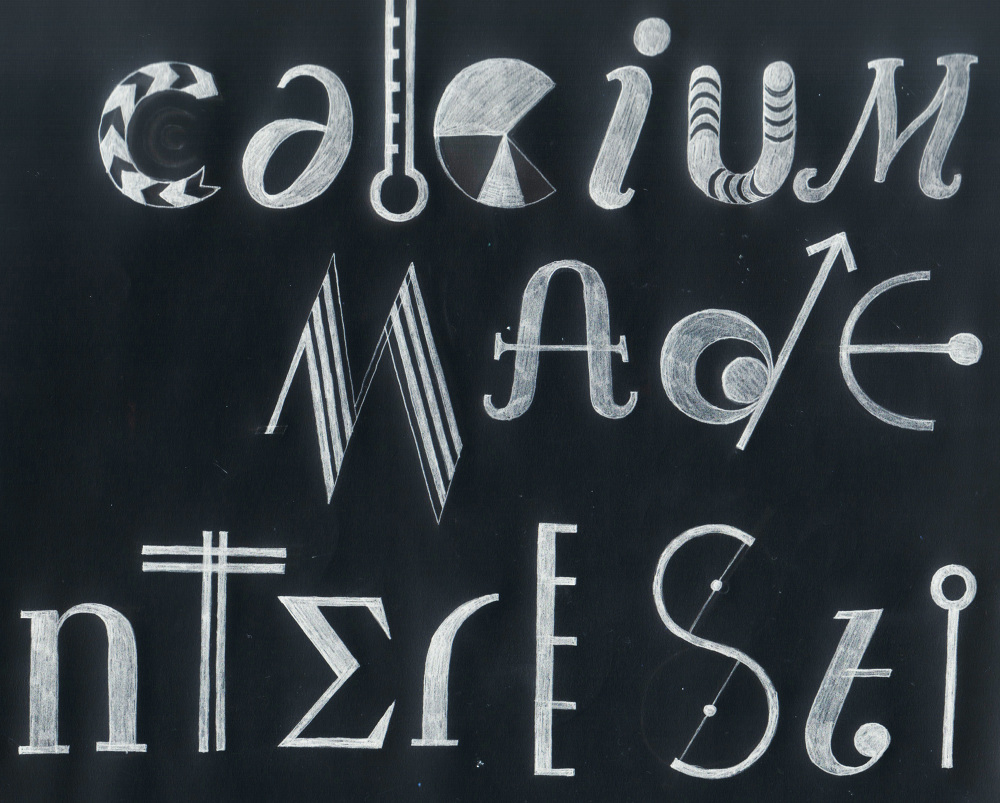 calciuM
MAdE
nTΣrESti